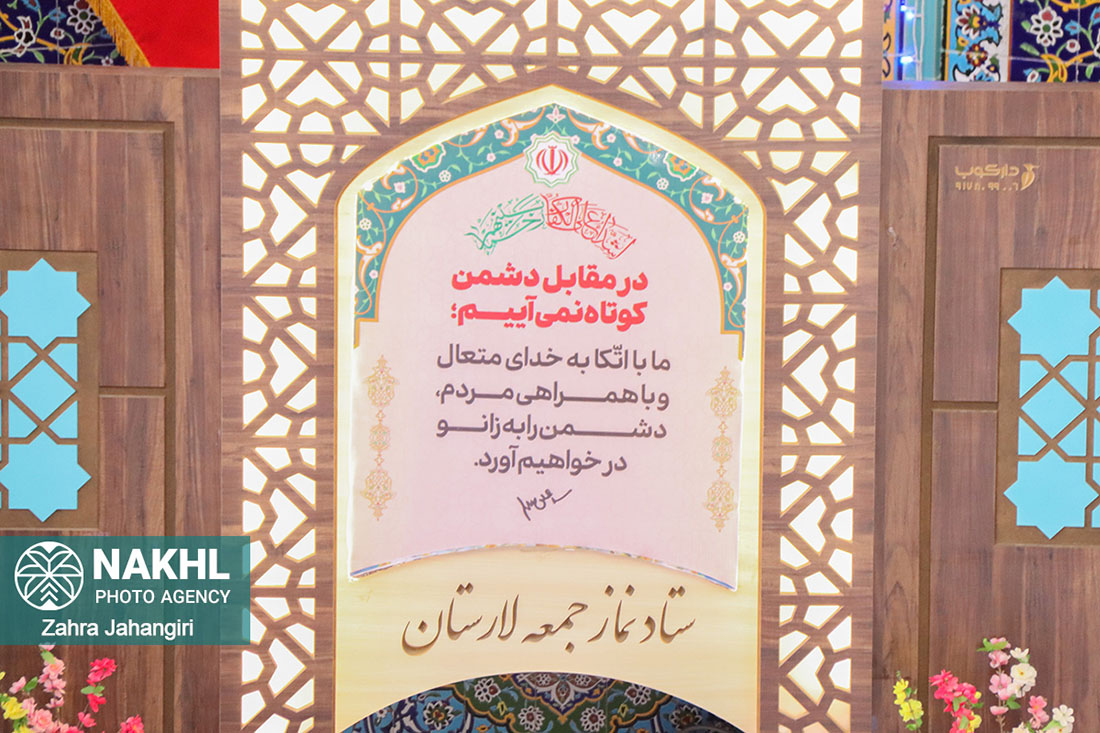 اشداء علی الکفار رحماء بینهم
در مقابل دشمن
کوتاه نمی‌آییم؛
ما با اتّکا به خدای متعال
و با همراهی مردم،
دشمن را به زانو
در خواهیم آورد.
ستاد نماز جمعه لارستان
دارکوب
۹۱۷۸۰۹۹۰۰۶
NAKHL
PHOTO AGENCY
Zahra Jahangiri